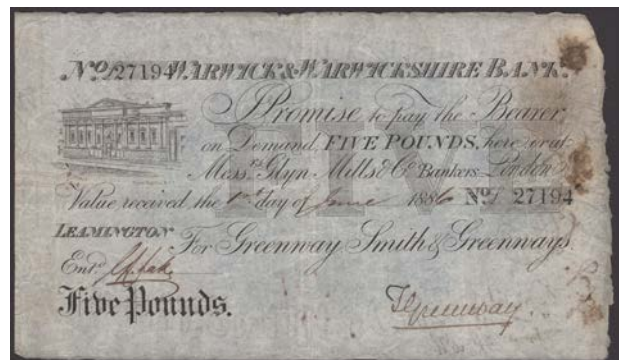 No. 27194 WARWICK & WARWICKSHIRE BANK.
I Promise to pay the Bearer
on Demand, FIVE POUNDS, here or at
Messrs. Glyn Mills & Co. Bankers London
Value received, the 1st day of June 1886 No. 27194
LEAMINGTON For Greenway, Smith & Greenways.
Entd.
Five Pounds.
TGreenway
FIVE